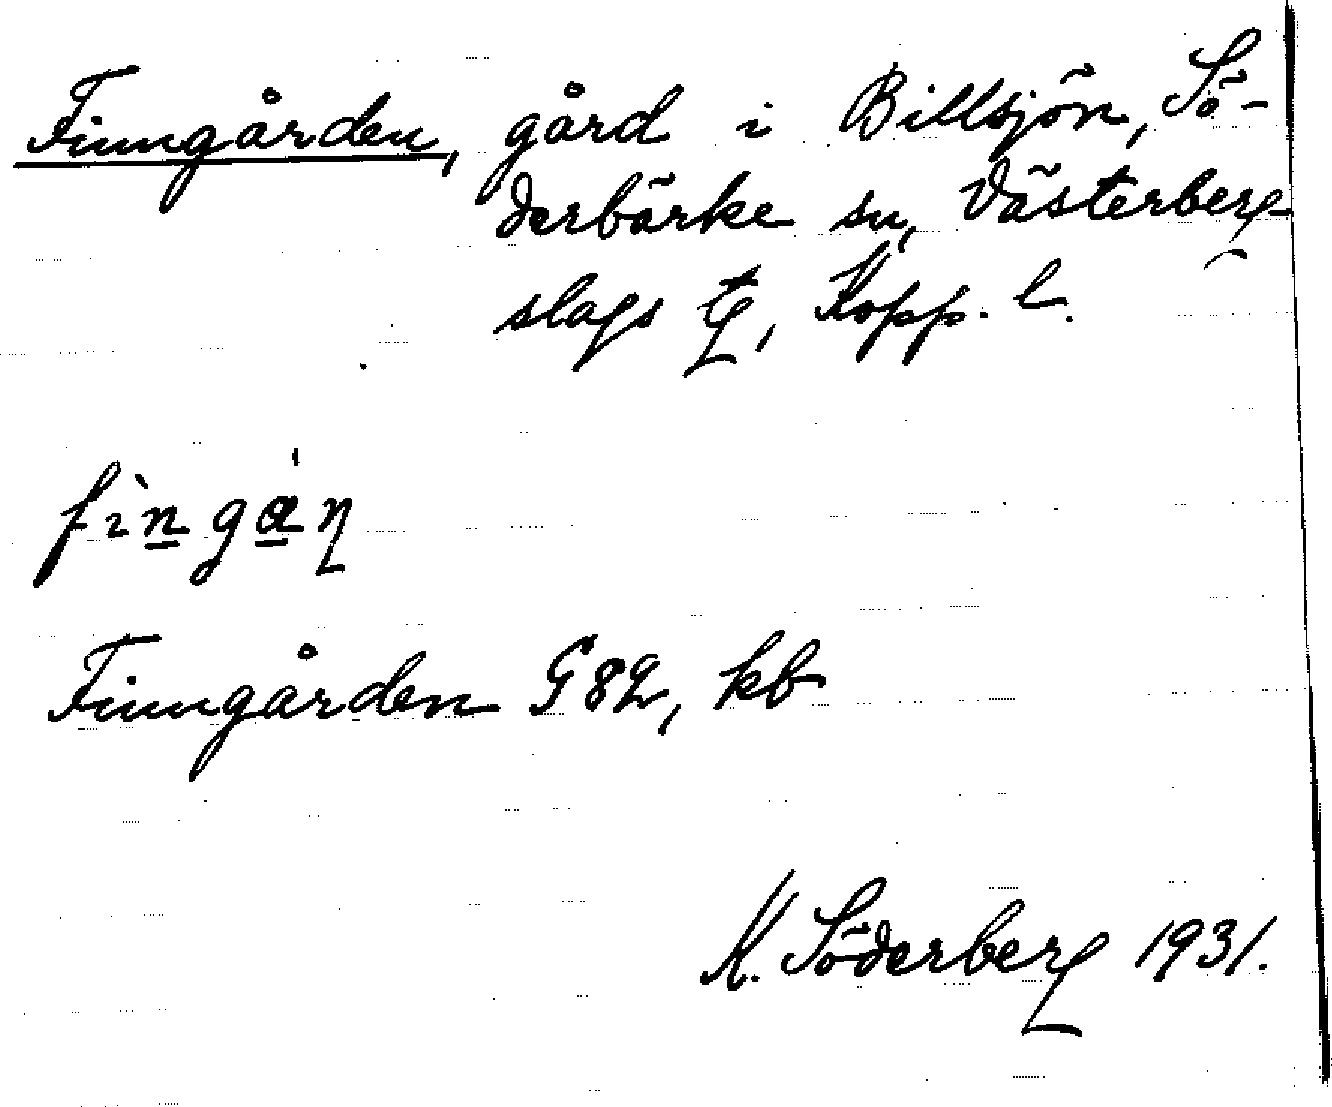 Finngården, gård i Billsjön, Sö-
derbärke sn, Västerberg
slags tg, Kopp. l.
fìn̲gά̲ɳ
Finngården G82, kb
K. Söderberg 1931.